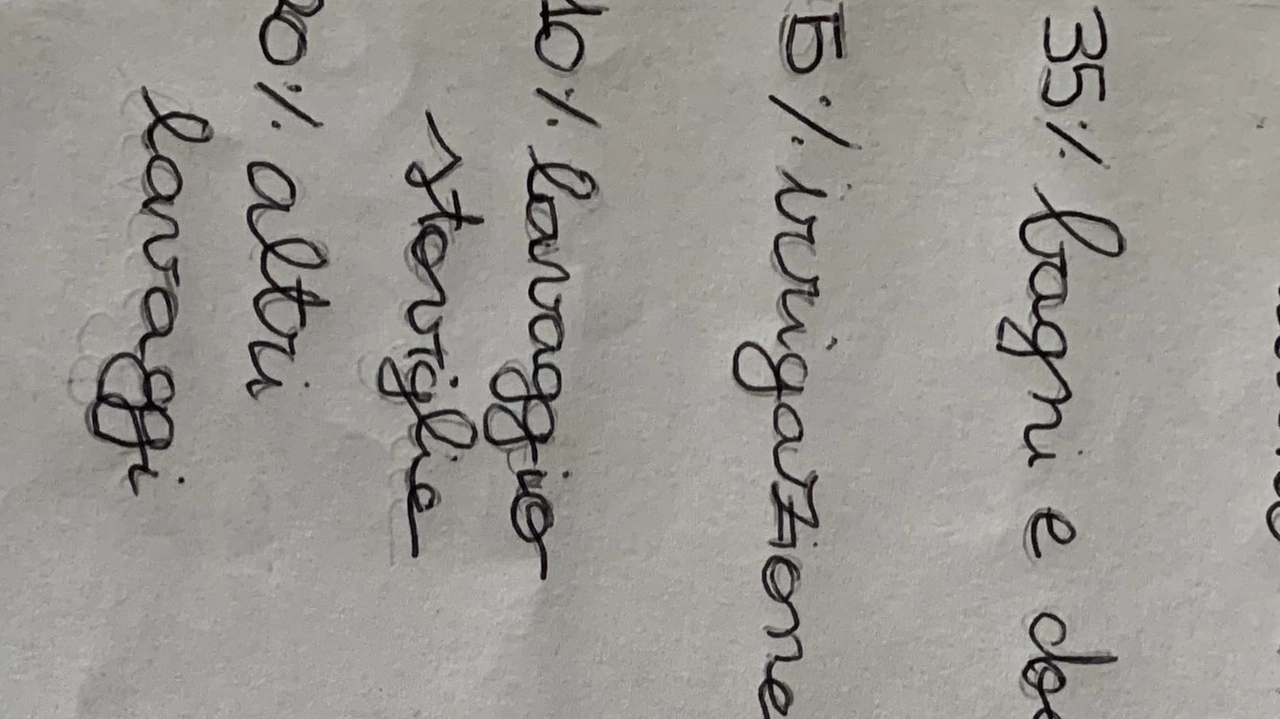 35% bagni e do
5% irrigazione
10% lavaggio
stoviglie
20% altri
lavaggi